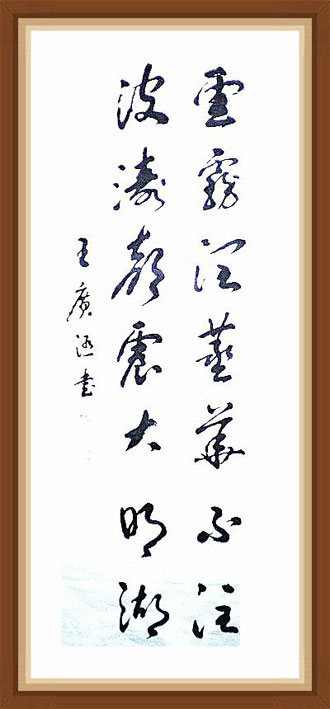 雲霧润蒸華不注
波濤聲震大明湖
王廣書